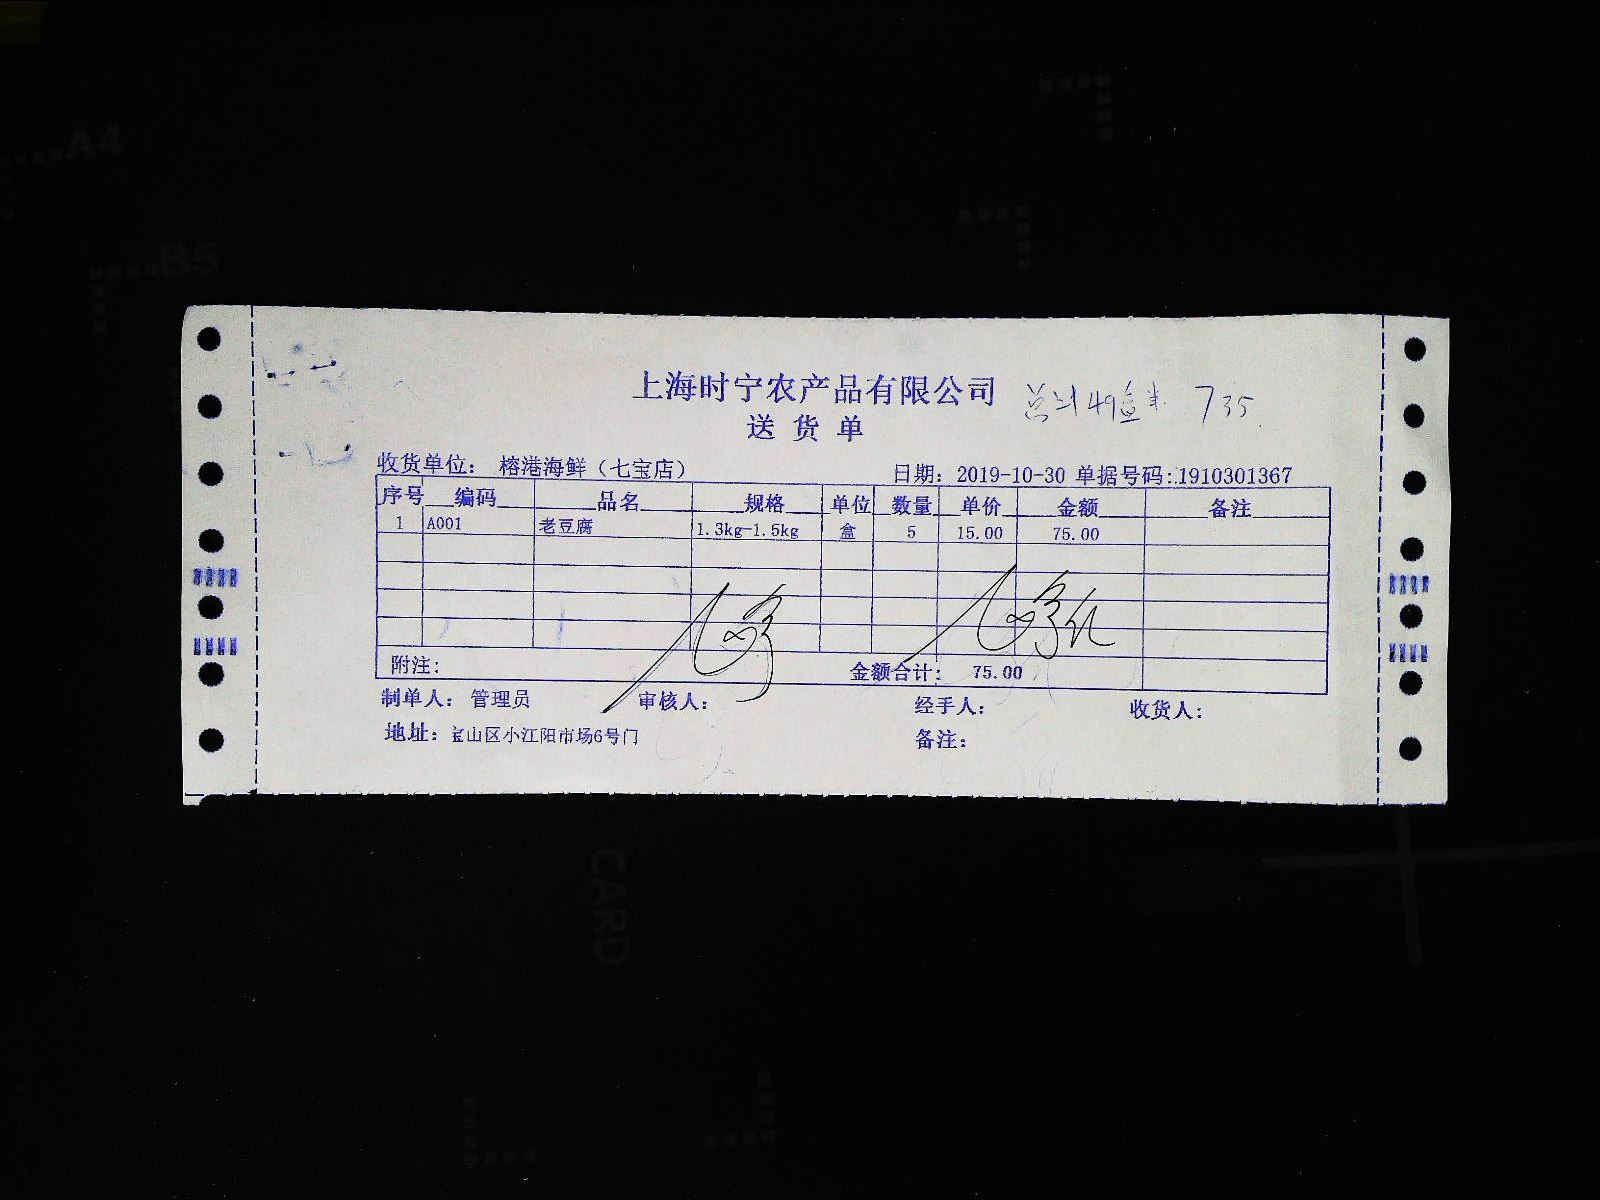 A4
B5
上海时宁农产品有限公司 总计49盒 735
送货单
收货单位: 榕港海鲜(七宝店) 日期: 2019-10-30 单据号码:1910301367
序号 编码 品名 规格 单位 数量 单价 金额 备注
1 A001 老豆腐 1.3kg-1.5kg 盒 5 15.00 75.00
附注: 金额合计: 75.00
制单人: 管理员 审核人: 经手人: 收货人:
地址: 宝山区小江阳市场6号门 备注:
CARD